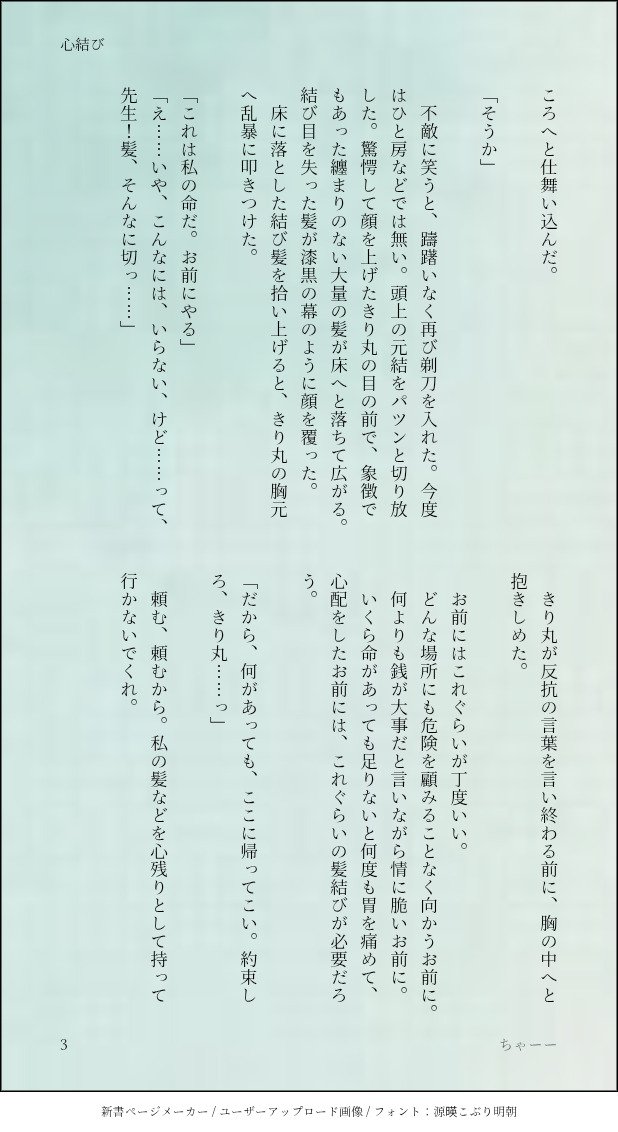 心結び
ころへと仕舞い込んだ。
「そうか」
不敵に笑うと、躊躇いなく再び剃刀を入れた。今度
はひと房などでは無い。頭上の元結をパツンと切り放
した。驚愕して顔を上げたきり丸の目の前で、象徴で
もあった纏まりのない大量の髪が床へと落ちて広がる。
結び目を失った髪が漆黒の幕のように顔を覆った。
床に落とした結び髪を拾い上げると、きり丸の胸元
へ乱暴に叩きつけた。
「これは私の命だ。お前にやる」
「え……いや、こんなには、いらない、けど……って、
先生！髪、そんなに切っ……」
きり丸が反抗の言葉を言い終わる前に、胸の中へと
抱きしめた。
お前にはこれぐらいが丁度いい。
どんな場所にも危険を顧みることなく向かうお前に。
何よりも銭が大事だと言いながら情に脆いお前に。
いくら命があっても足りないと何度も胃を痛めて、
心配をしたお前には、これぐらいの髪結びが必要だろ
う。
「だから、何があっても、ここに帰ってこい。約束し
ろ、きり丸……っ」
頼む、頼むから。私の髪などを心残りとして持って
行かないでくれ。
3
ちゃーー
新書ページメーカー / ユーザーアップロード画像 / フォント：源暎こぶり明朝